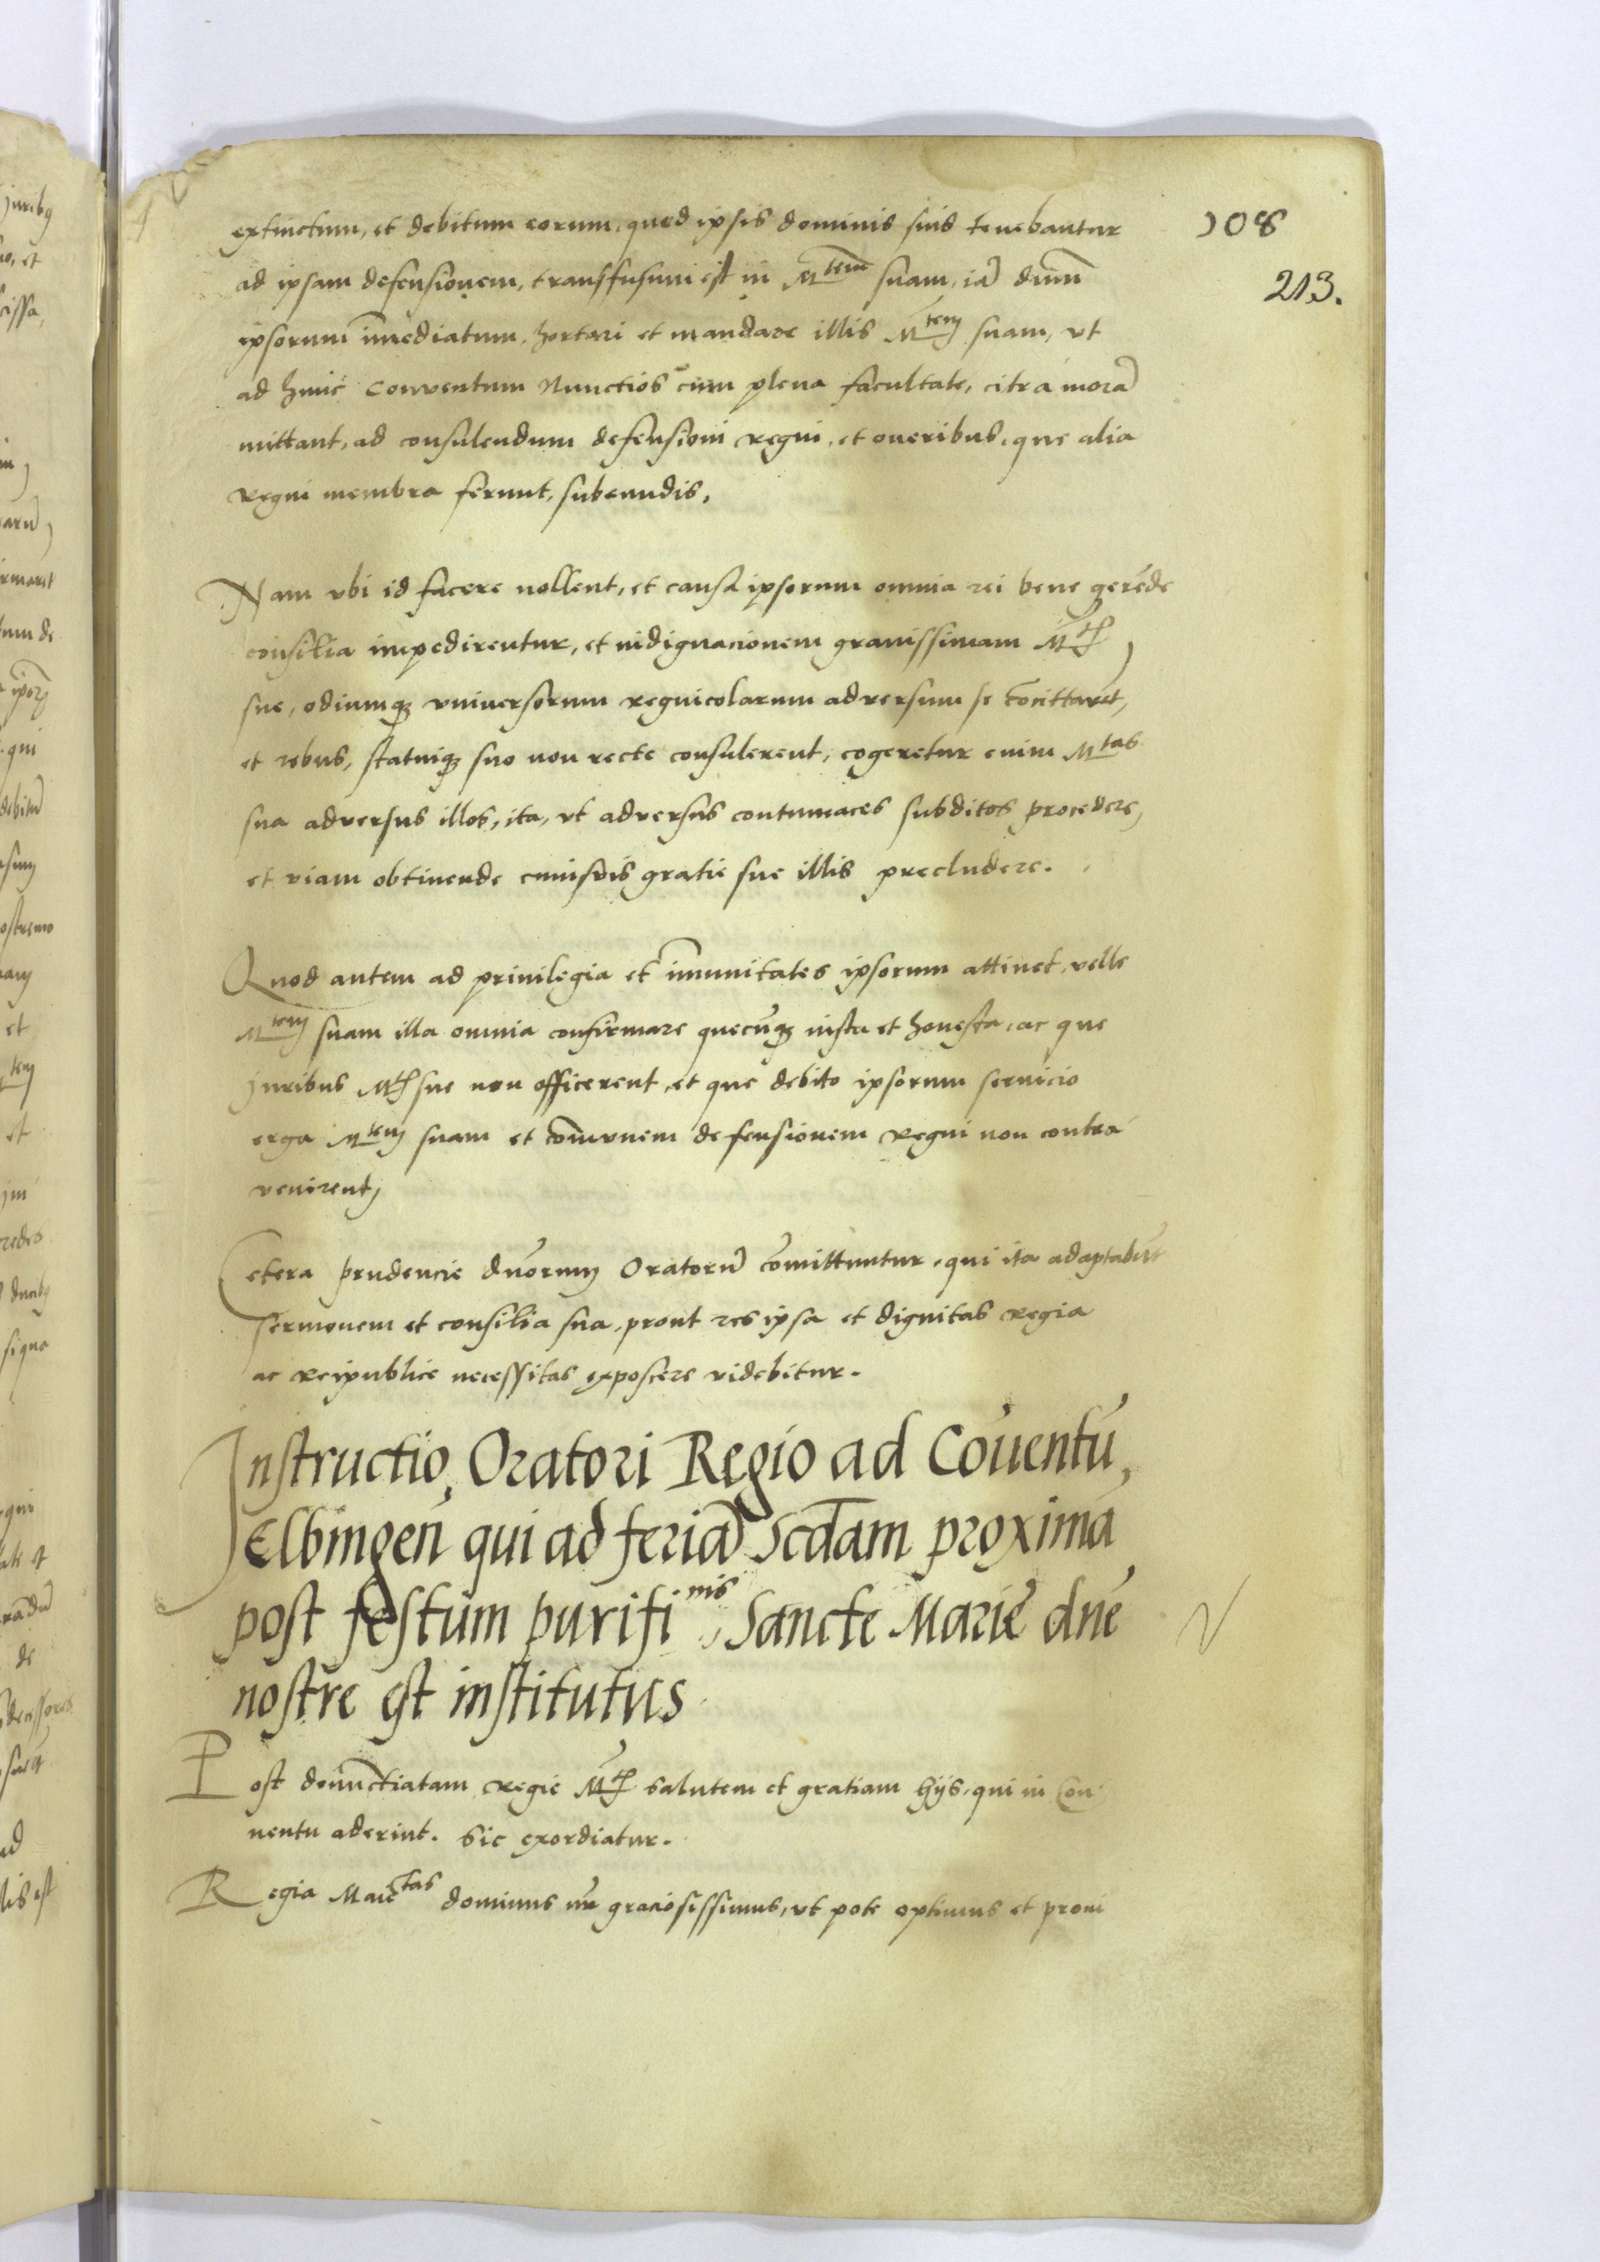 108
213.
extinctum, et debitum eorum, quod ipsis dominis suis tenebantur
ad ipsam defensionem, transfusum est in Mtem suam, iā dnm̄
ipsorum īmediatum, hortari et mandare illis Mtem suam, vt
ad hunc Conventum Nunctios cum plena facultate, citra morā
mittant, ad consulendum defensioni regni, et oneribus, que alia
regni membra ferunt, subeundis.
Nam vbi id facere nollent, et causa ipsorum omnia rei bene gerēde
consilia impedirentur, et indignacionem grauissimam Mtis
sue, odiumq3 vniuersorum regnicolarum adversum se cōcittarēt,
et rebus, statuiq3 suo non recte consulerent, cogeretur enim Mtas
sua adversus illos, ita, vt adversus contumaces subditos procedere,
et viam obtinende cuiusvis gratie sue illis precludere.
Quod autem ad priuilegia et īmunitates ipsorum attinet, velle
Mtem suam illa omnia confirmare quecūq3 iusta et honesta, ac que
Juribus Mtis sue non officerent, et que debito ipsorum seruicio
erga Mtem suam et com̄vnem defensionem regni non contra
venirent
Cetera prudencie dnōrum Oratorū cōmittuntur, qui ita adaptabūt
sermonem et consilia sua, prout res ipsa et dignitas regia
ac reipublice necessitas exposcere videbitur.
Instructio Oratori Regio ad Cōuentū
Elbingeñ qui ad feriā Scdam proximā
post festum purifinis Sancte Marie dnē
nostre est institutus
Post denunctiatam regie Mtis salutem et gratiam hijs, qui in Con
uentu aderint. sic exordiatur.
Regia Maiestas dominus nr̄ graciosissimus, vt pote optimus et proui